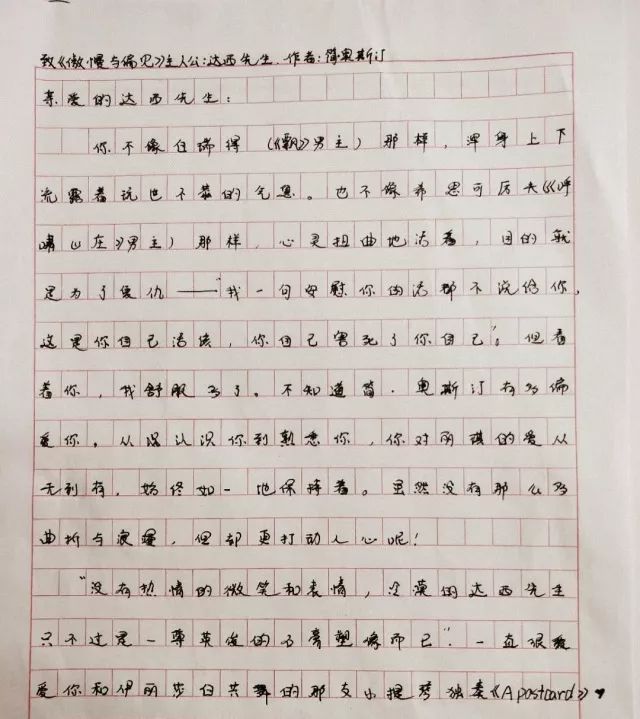 致《傲慢与偏见》主人公:达西先生. 作者:简奥斯汀
亲爱的达西先生:
你不像白瑞得(《飘》男主)那样,浑身上下
流露着玩世不恭的气息。也不像希思可厉夫《呼
啸山庄》男主)那样,心灵扭曲地活着,目的就
是为了复仇——“我一句安慰你的话都不说给你,
这是你自己活该,你自己害死了你自己”。但看
着你,我舒服多了。不知道简·奥斯汀有多偏
爱你。从没认识你到熟悉你,你对丽琪的爱从
无到有,始终如一地保持着。虽然没有那么多
曲折与浪漫,但却更打动人心呢!
“没有热情的微笑和表情,冷漠的达西先生
只不过是一尊英俊的石膏塑像而已”.一直很
爱你和伊丽莎白共舞的那支小提琴独奏《A postcard》